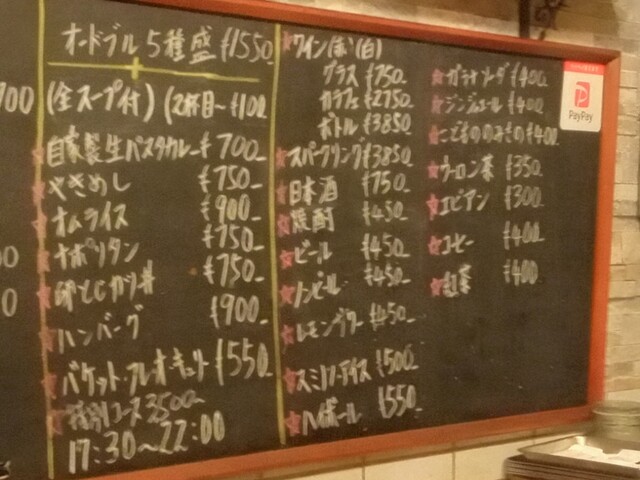 オードブル5種盛 ¥1550
(全スープ付) (2杯目〜¥100
自家製生パスタカレー ¥700
やきめし ¥750-
オムライス ¥900-
ナポリタン ¥750-
¥750-
ハンバーグ ¥900-
バケット・フレオ・キュリ ¥550-
特別コース3500
17:30〜22:00
700
00
0
ワイン(赤)(白)
グラス ¥750-
カラフェ ¥2750
ボトル ¥3850
スパークリング ¥3850
日本酒 ¥750-
焼酎 ¥450-
ビール ¥450-
ノンビール ¥450-
レモンサワー ¥450-
スミノフアイス ¥500
ハイボール ¥550-
ガラナソーダ ¥400
ジンジャエール ¥400
こどもののみもの ¥400
ウーロン茶 ¥350
エビアン ¥300
コーヒー ¥400
紅茶 ¥400
PayPay